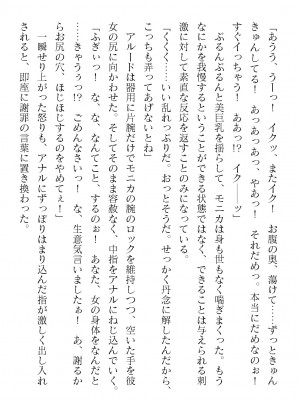 「あうう、うーっ！　イクッ、またイク！　お腹の奥、蕩けて……ずっときゅん
きゅんしてる！　あっあっあっ、やあっ！　それだめっ。本当にだめなのぉ！
すぐイッちゃう！　ああっ！？　イク━━ッ」
　ぶるんぶるんと美巨乳を揺らして、モニカは身も世もなく喘ぎまくった。もう
なにかを我慢するということができる状態ではなく、できることは与えられる刺
激に対して素直な反応を返すことのみになっている。
「くくく……いい乱れっぷりだ。おっとそうだ。せっかく丹念に解したんだから、
こっちも弄ってあげないとね」
　アルードは器用に片腕だけでモニカの腕のロックを維持しつつ、空いた手を彼
女の尻に向かわせた。そしてそのまま容赦なく、中指をアナルにねじ込んでいく。
「ふぎぃっ！　な、なんてこと、するのぉっ！　あなた、女の身体をなんだと
……きゃうぅっ！？　ごめんなさいっ！　な、生意気言いましたぁっ！　あ、謝るか
らお尻の穴、ほじほじするのをやめてぇっ！」
　一瞬せり上がった怒りも、アナルにずっぽりはまり込んだ指が激しく出し入れ
されると、即座に謝罪の言葉に置き換わった。